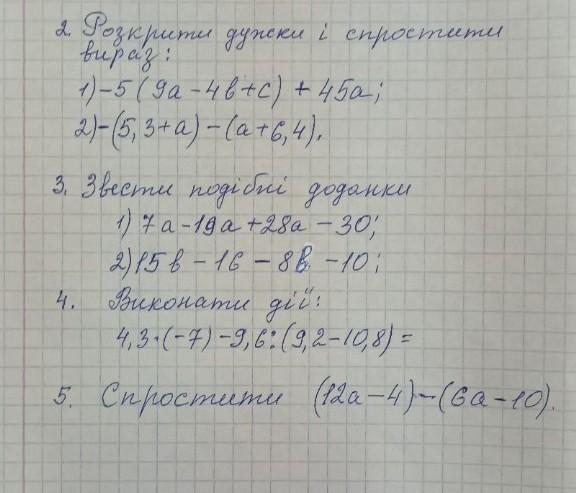 2. Розкрити дужки і спростити
вираз:
1) -5(9a - 4в + c) + 45a;
2) -(5,3+a) - (a+6,4).
3. Звести подібні доданки
1) 7a - 19a + 28a - 30;
2) 15в - 16 - 8в - 10;
4. Виконати дії:
4,3·(-7) - 9,6:(9,2 - 10,8) =
5. Спростити (12a - 4) - (6a - 10).